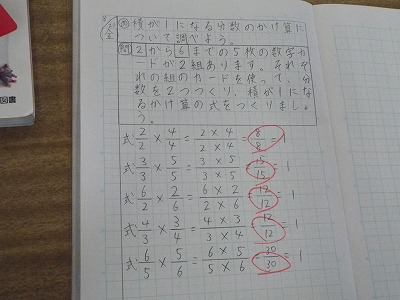 8/31 金
め 積が1になる分数のかけ算に
ついて調べよう。
問 2から6までの5枚の数字カ
ードが2組あります。それぞ
れの組のカードを使って、分
数を2つつくり、積が1にな
るかけ算の式をつくりましょ
う。
式 2/2 × 4/4 = 2×4/2×4 = 8/8 = 1
式 3/3 × 5/5 = 3×5/3×5 = 15/15 = 1
式 6/2 × 2/6 = 6×2/2×6 = 12/12 = 1
式 4/3 × 3/4 = 4×3/3×4 = 12/12 = 1
式 6/5 × 5/6 = 6×5/5×6 = 30/30 = 1
図書